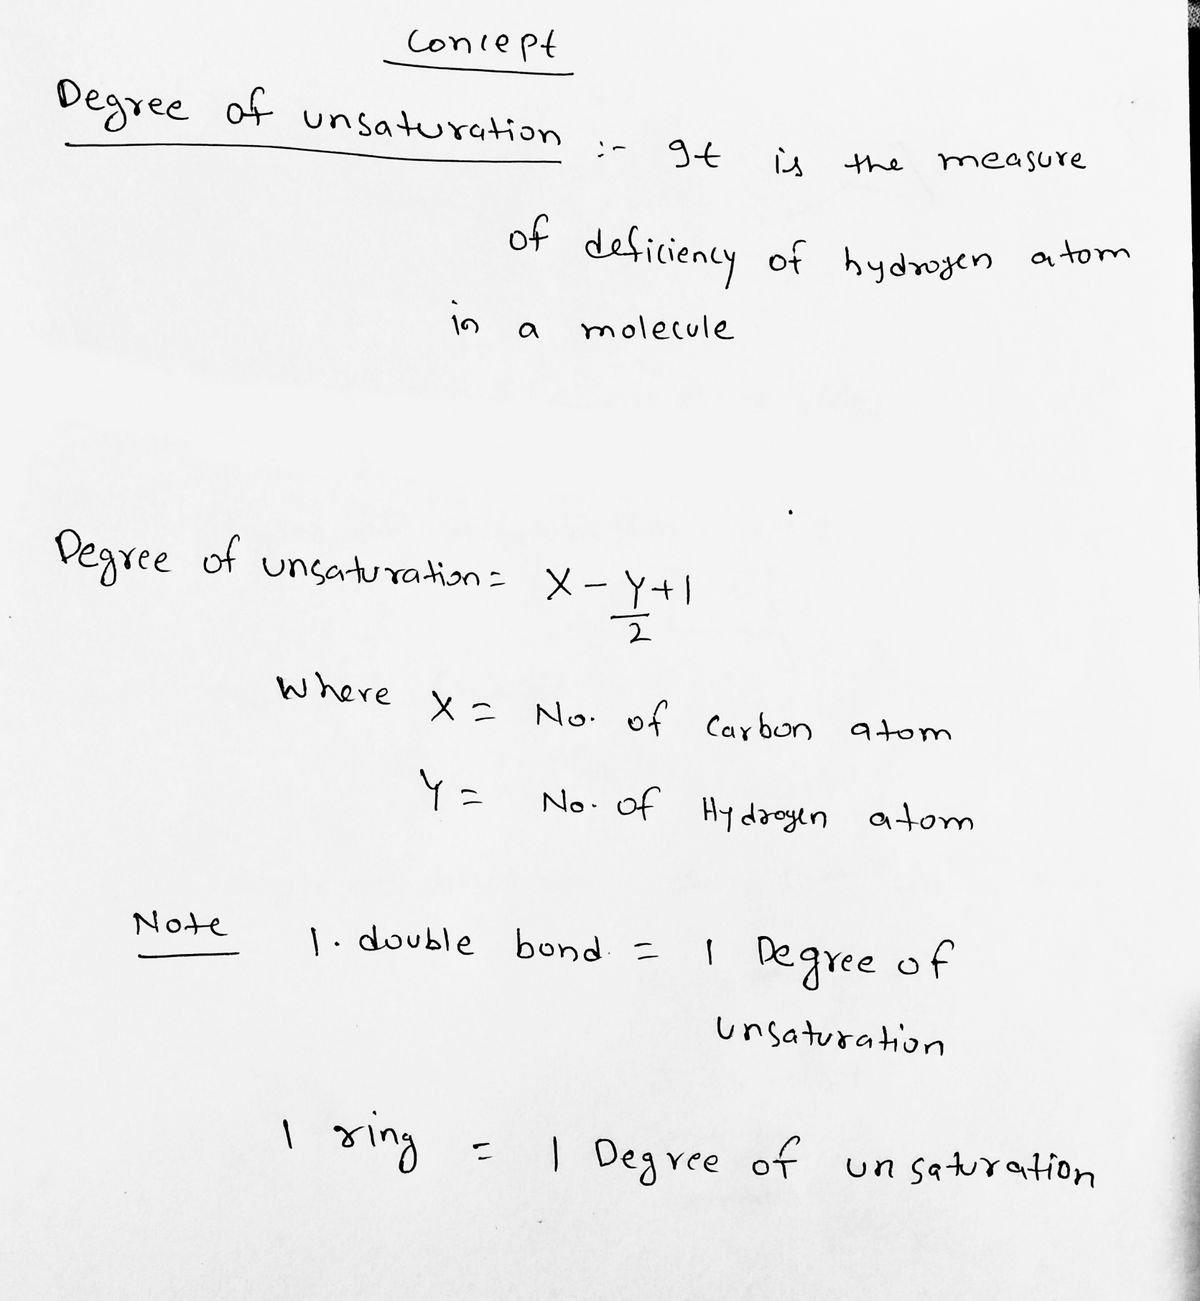 Concept
Degree of unsaturation :- It is the measure
of deficiency of hydrogen atom
in a molecule
Degree of unsaturation = X - Y/2 + 1
Where X = No. of Carbon atom
Y = No. of Hydrogen atom
Note 1. double bond. = 1 Degree of
unsaturation
1 ring = 1 Degree of unsaturation